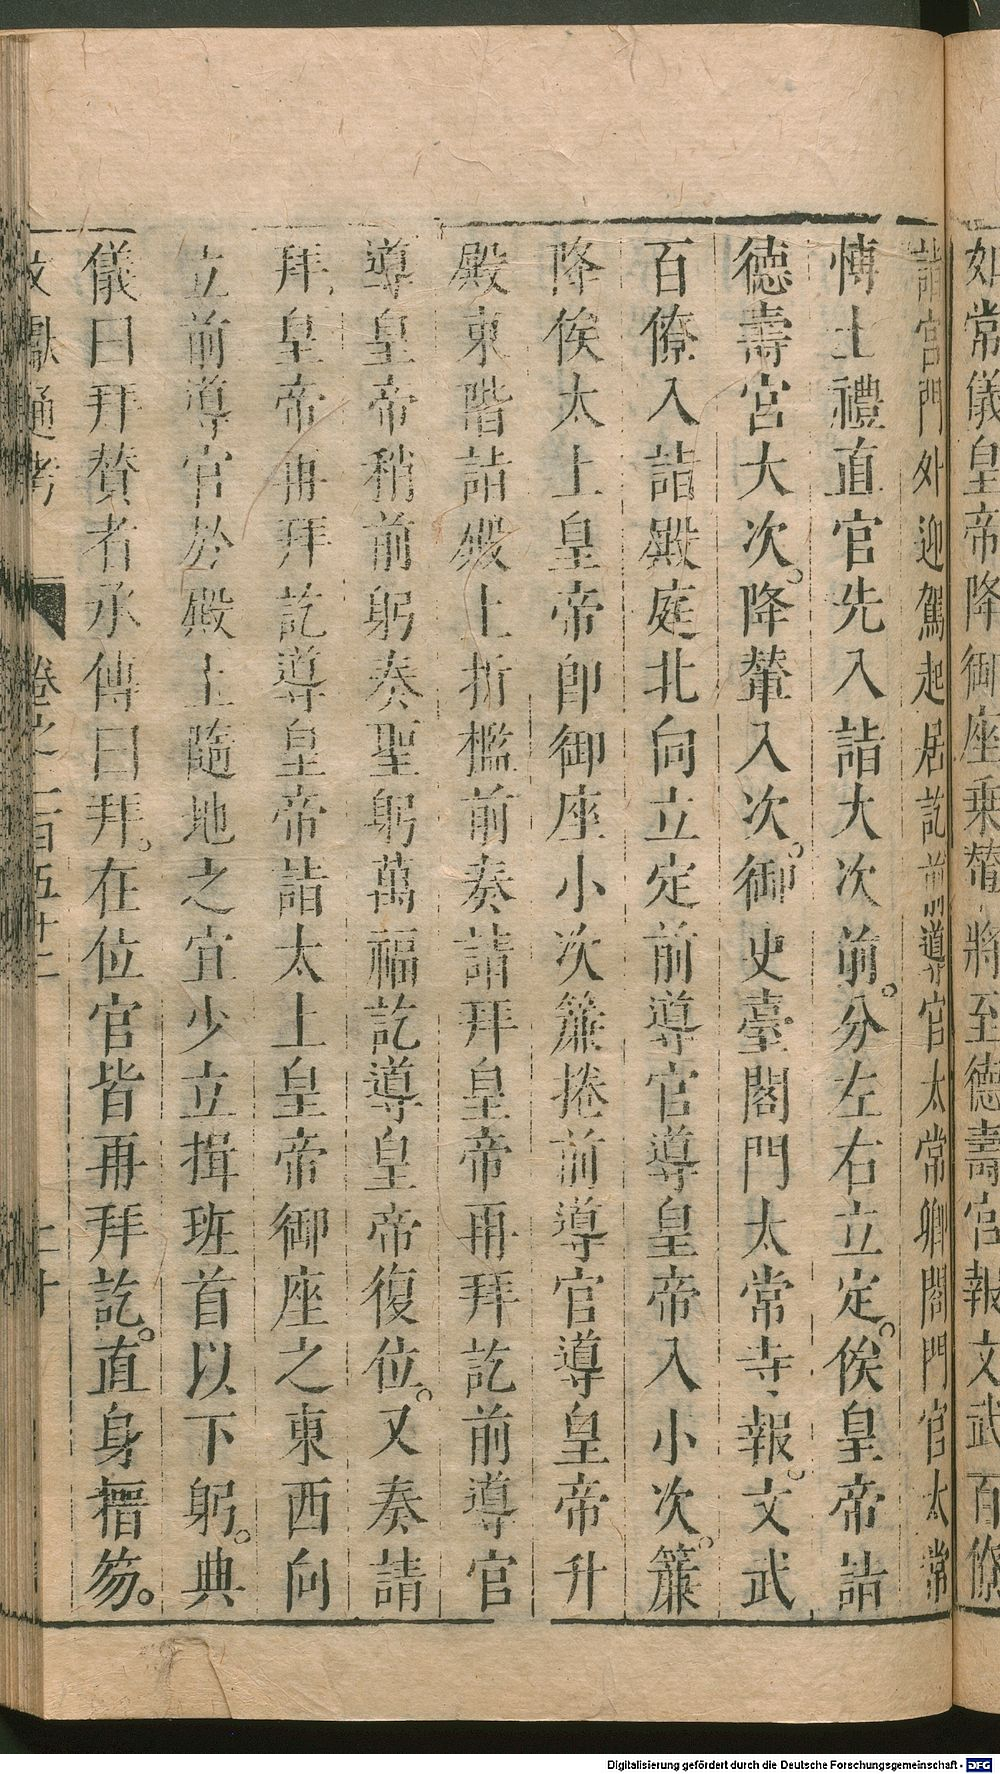 如常儀皇帝降御座乗輦將至德壽宮報文武百僚
詣宮門外迎駕起居訖前導官太常卿閤門官太常
博士禮直官先入詣大次前。分左右立定。俟皇帝詣
德壽宮大次。降輦入次。御史臺閤門太常寺報。文武
百僚入詣殿庭北向立定前導官導皇帝入小次。簾
降俟太上皇帝即御座小次簾捲前導官導皇帝升
殿東階詣殿上折檻前奏請拜皇帝再拜訖前導官
導皇帝稍前躬奏聖躬萬福訖導皇帝復位。又奏請
拜皇帝再拜訖導皇帝詣太上皇帝御座之東西向
立前導官於殿上隨地之宜少立揖班首以下躬。典
儀曰拜贊者承傳曰拜。在位官皆再拜訖。直身搢笏。
文獻通考 卷之一百五十二 二十
Digitalisierung gefördert durch die Deutsche Forschungsgemeinschaft - DFG